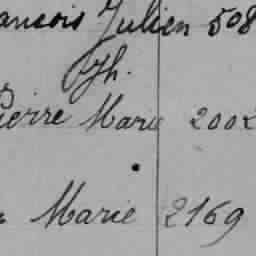 ancois Julien 508
Jh.
Pierre Marie 2002
Marie 2169